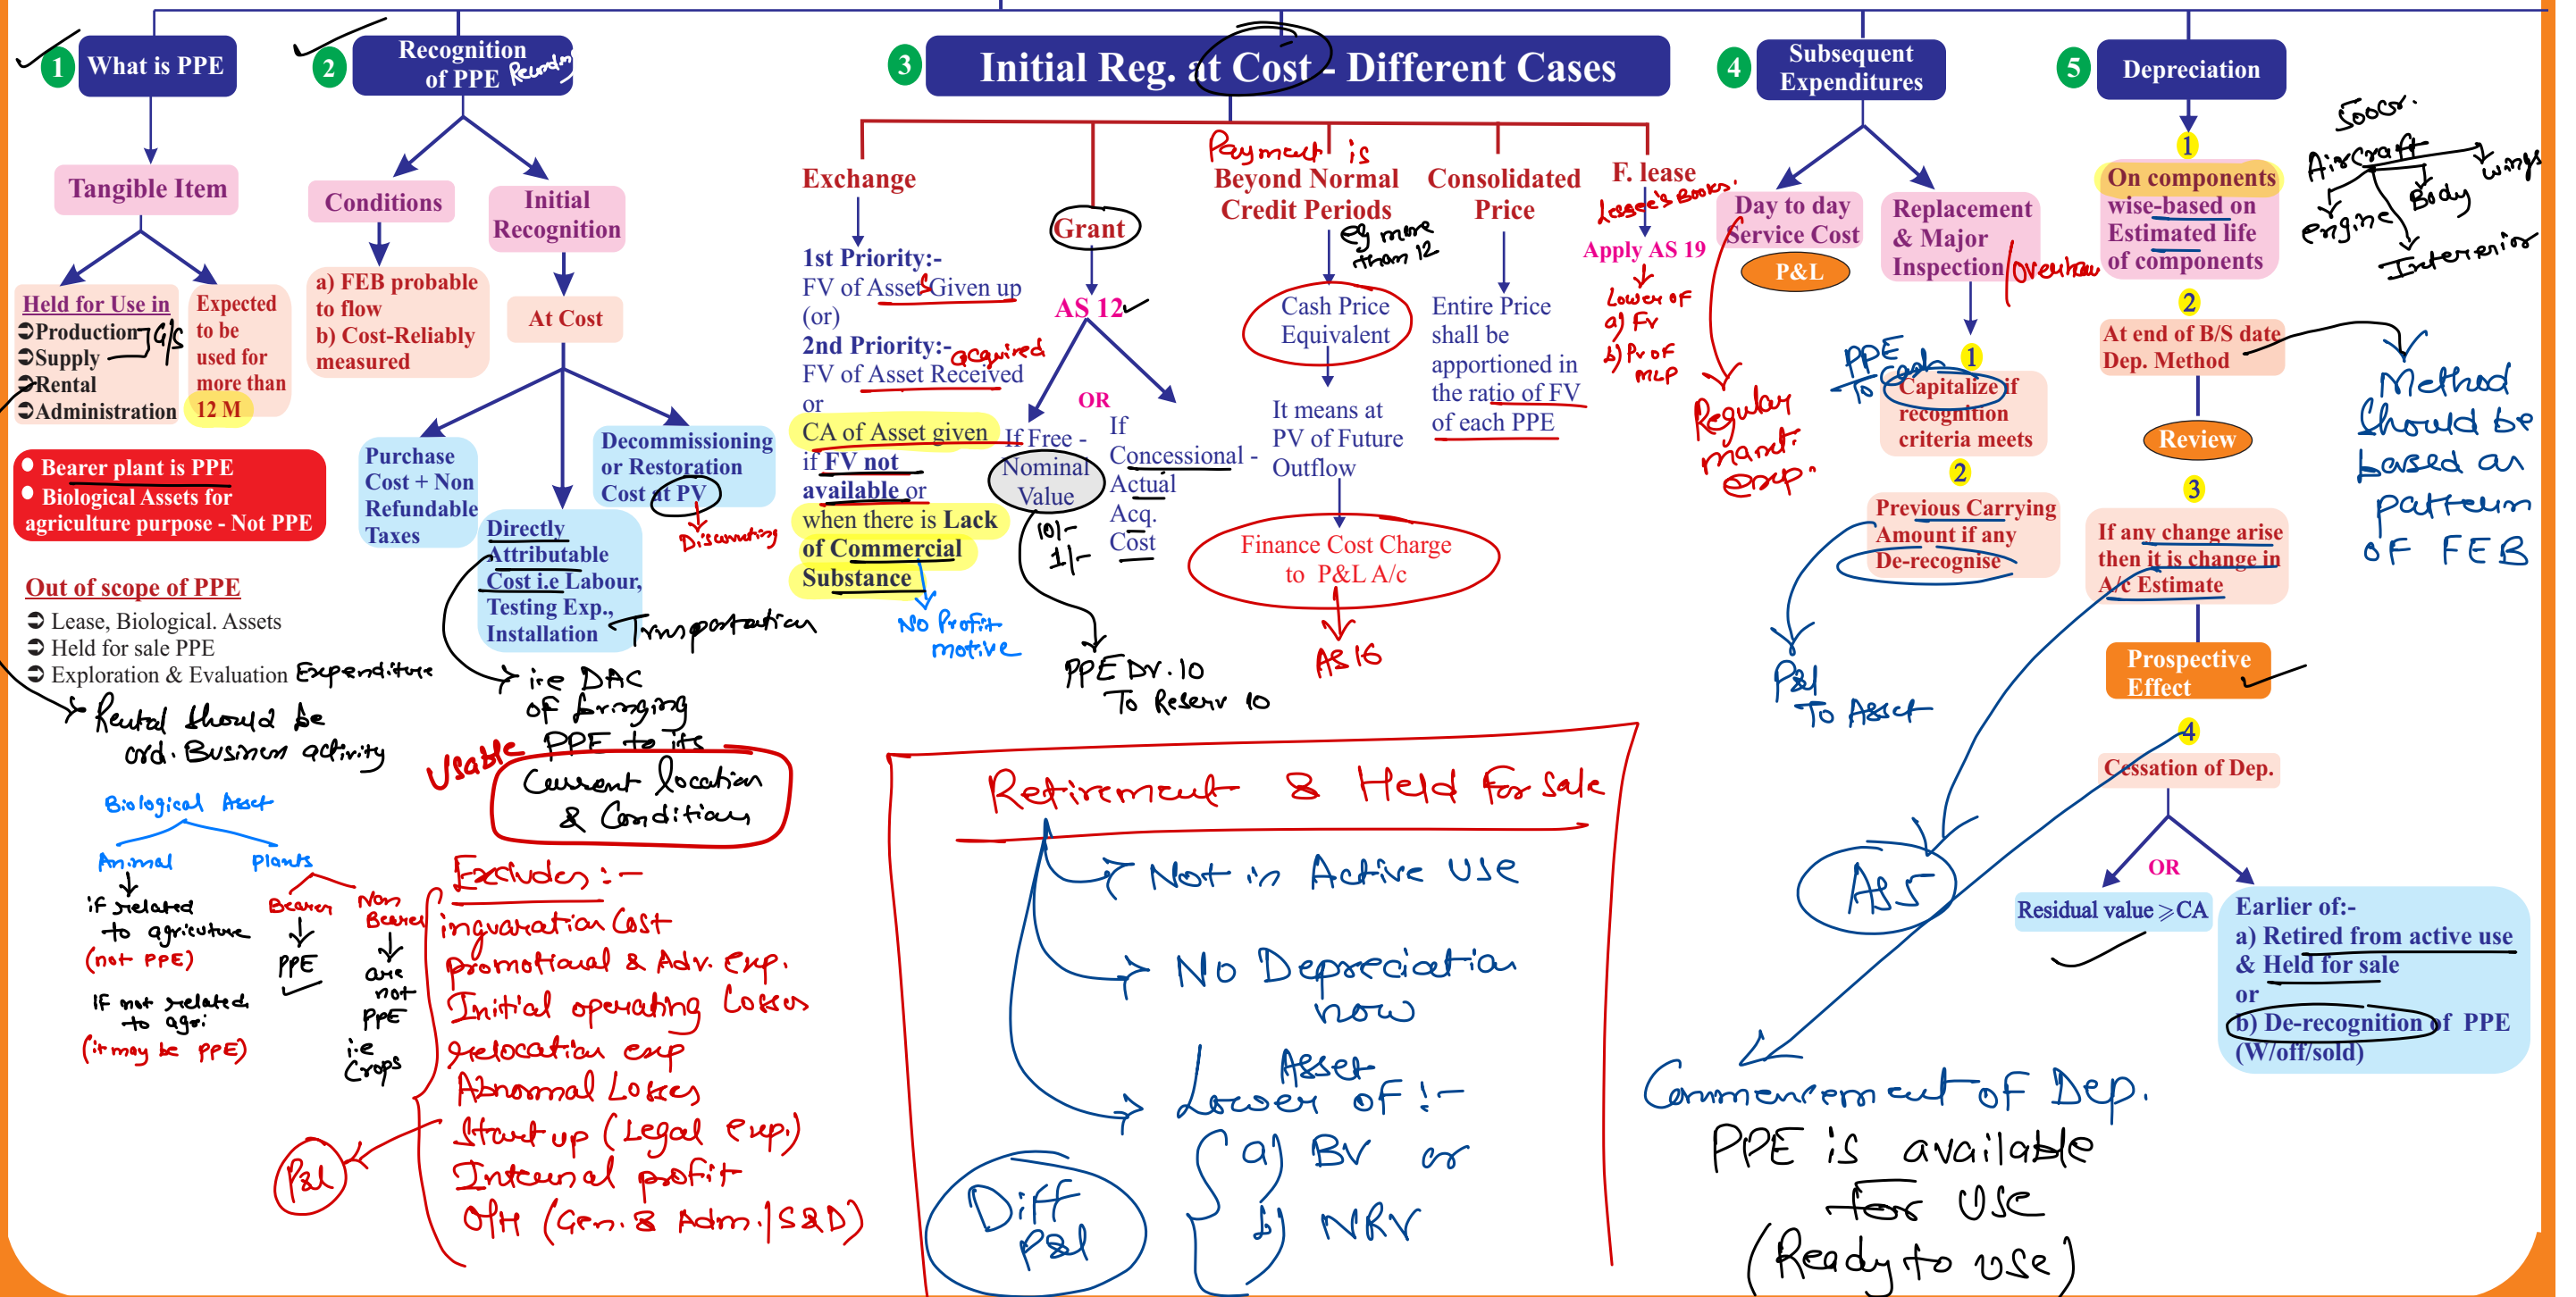 1 What is PPE
Tangible Item
Held for Use in
Production
Supply
G/S
Rental
Administration
Expected
to be
used for
more than
12 M
Bearer plant is PPE
Biological Assets for
agriculture purpose - Not PPE
Out of scope of PPE
Lease, Biological. Assets
Held for sale PPE
Exploration & Evaluation Expenditure
Rental should be
ord. Business activity
Biological Asset
Animal
Plants
if related
to agricuture
(not PPE)
IF not related
to agri
(it may be PPE)
Bearer
PPE
Non
Bearer
are
not
PPE
i.e
Crops
2 Recognition
of PPE
Conditions
a) FEB probable
to flow
b) Cost-Reliably
measured
Initial
Recognition
At Cost
Purchase
Cost + Non
Refundable
Taxes
Directly
Attributable
Cost i.e Labour,
Testing Exp.,
Installation
Decommissioning
or Restoration
Cost at PV
Discounting
i.e DAC
of bringing
PPE to its
Usable
Current location
& Condition
Excludes :-
promotional & Adv. exp.
Initial operating Losses
relocation exp
Abnormal Losses
Start up (Legal exp.)
Internal profit
O/H (Gen. & Adm./S&D)
P&L
3 Initial Reg. at Cost - Different Cases
Exchange
1st Priority:-
FV of Assets Given up
(or)
2nd Priority:-
acquired
FV of Asset Received
or
CA of Asset given
if FV not
available or
when there is Lack
of Commercial
Substance
No Profit
motive
Grant
AS 12
OR
If Free -
Nominal
Value
10/-
1/-
PPE Dr. 10
To Reserv 10
If
Concessional -
Actual
Acq.
Cost
Payment is
Beyond Normal
Credit Periods
eg more
than 12
Cash Price
Equivalent
It means at
PV of Future
Outflow
Finance Cost Charge
to P&L A/c
AS 16
Consolidated
Price
Entire Price
shall be
apportioned in
the ratio of FV
of each PPE
F. lease
Lessee's Books.
Apply AS 19
Lower of
a) FV
b) Pv of
MLP
Retirement & Held for sale
Not in Active Use
No Depreciation
now
Asset
Lower of :-
a) BV or
b) NRV
Diff
P&L
4 Subsequent
Expenditures
Day to day
Service Cost
P&L
Regular
Replacement
& Major
Inspection
PPE
To Cash
1
Capitalize if
recognition
criteria meets
2
Previous Carrying
Amount if any
De-recognise
P&L
To Asset
5 Depreciation
1
On components
wise-based on
Estimated life
of components
500cr.
Aircraft
engine
Body
wings
Interrior
2
At end of B/S date
Dep. Method
Method
Should be
based on
pattern
OF FEB
Review
3
If any change arise
then it is change in
A/c Estimate
AS5
Prospective
Effect
4
Cessation of Dep.
OR
Residual value ⩾CA
Earlier of:-
a) Retired from active use
& Held for sale
or
b) De-recognition of PPE
(W/off/sold)
Commencement of Dep.
PPE is available
for use
(Ready to use)